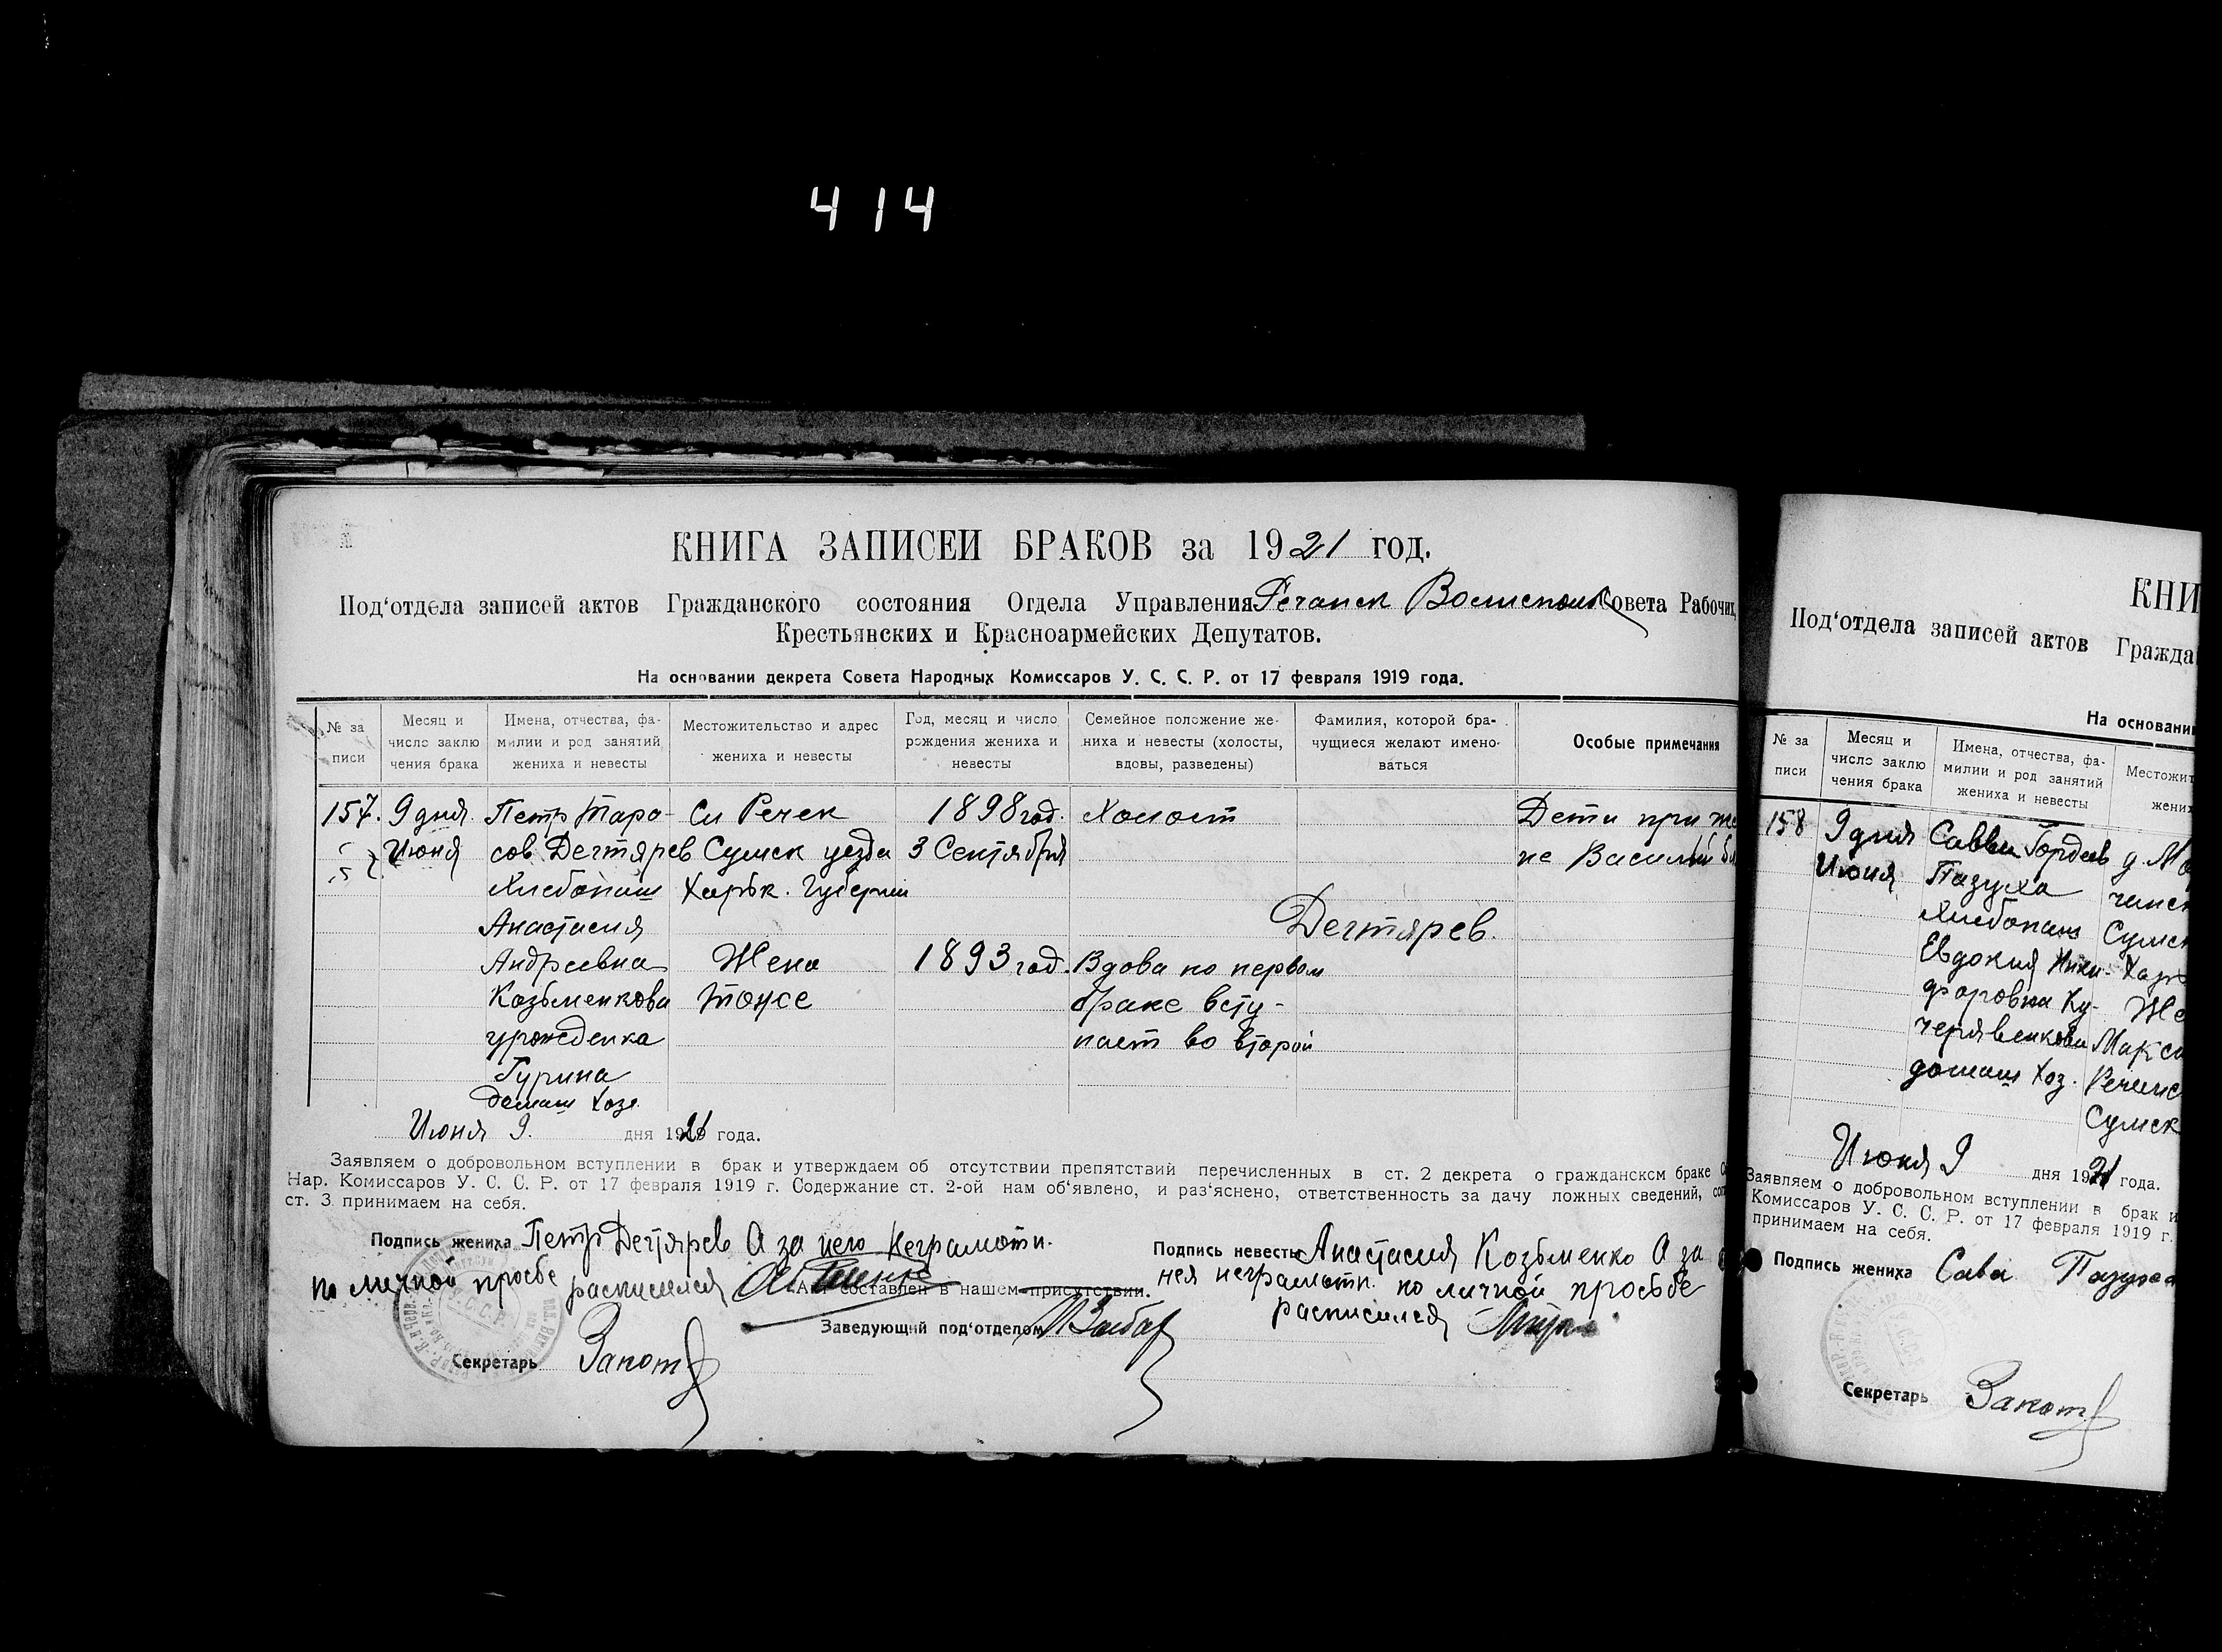 414
КНИГА ЗАПИСЕЙ БРАКОВ за 1921 год.
Под‘отдела записей актов Гражданского состояния Отдела Управления Речанск Совета Рабочих
Крестьянских и Красноармейских Депутатов.
На основании декрета Совета Народных Комиссаров У. С. С. Р. от 17 февраля 1919 года.
№ за писи
Месяц и число заклю чения брака
Имена, отчества, фа- милии и род занятий жениха и невесты
Местожительство и адрес жениха и невесты
Год, месяц и число рождения жениха и невесты
Семейное положение же- ниха и невесты (холосты, вдовы, разведены)
Фамилия, которой бра- чущиеся желают имено- ваться
Особые примечания
157. 9 дня Петр Тара- Сл Речек 1898 год. Холост Дети при же
Июня сов Дегтярев Сумск уезда 3 Сентября не Василий
Хлебопаш Харьк. Губернии
Анастасия Дегтярев.
Андреевна Жена 1893 год. Вдова по первом
Козьменкова тоже браке всту-
урожденка пает во второй
Гурина
домаш хозя
Июня 9. дня 1921 года.
Заявляем о добровольном вступлении в брак и утверждаем об отсутствии препятствий перечисленных в ст. 2 декрета о гражданском браке
Нар. Комиссаров У. С. С. Р. от 17 февраля 1919 г. Содержание ст. 2-ой нам об‘явлено, и раз‘яснено, ответственность за дачу ложных сведений,
ст. 3 принимаем на себя.
Подпись жениха Петр Дегтярев А за него неграмотн.
по личной просбе расписился
Акт составлен в нашем присутствии.
Подпись невесты Анастасия Козьменко А за
нея неграмотн. по личной просьбе
расписился
Заведующий под‘отделом
Секретарь
КНИ
Под‘отдела записей актов Гражда
На основани
№ за писи
Месяц и число заклю чения брака
Имена, отчества, фа- милии и род занятий жениха и невесты
Местожит жених
158 9 дня Савва Гордеев д. М
Июня Пазуха
Хлебопаш Сумск
Евдокия Ники- Харь
форовна Ку- Же
черявенкова Макси
домаш хоз. Речанс
Сумск
Июня 9 дня 1921 года.
Заявляем о добровольном вступлении в брак и
Комиссаров У. С. С. Р. от 17 февраля 1919 г.
принимаем на себя.
Подпись жениха Сава Пазуха
Секретарь